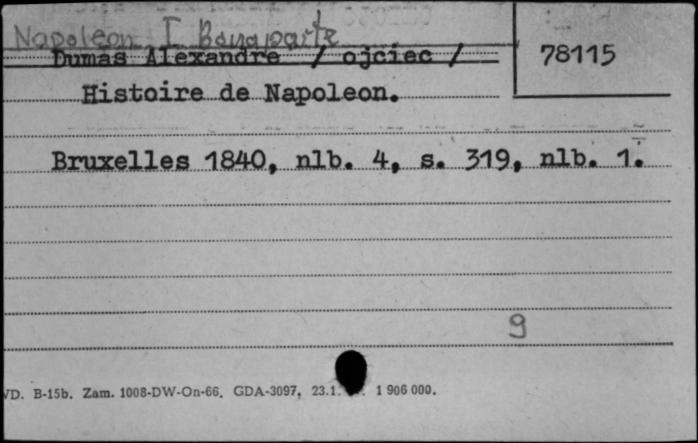 Napoleon I Bonaparte
Dumas Alexandre / ojciec /
78115
Histoire de Napoleon.
Bruxelles 1840, nlb. 4, s. 319, nlb. 1.
9
VD. B-15b. Zam. 1008-DW-On-66. GDA-3097, 23.1. 1 906 000.